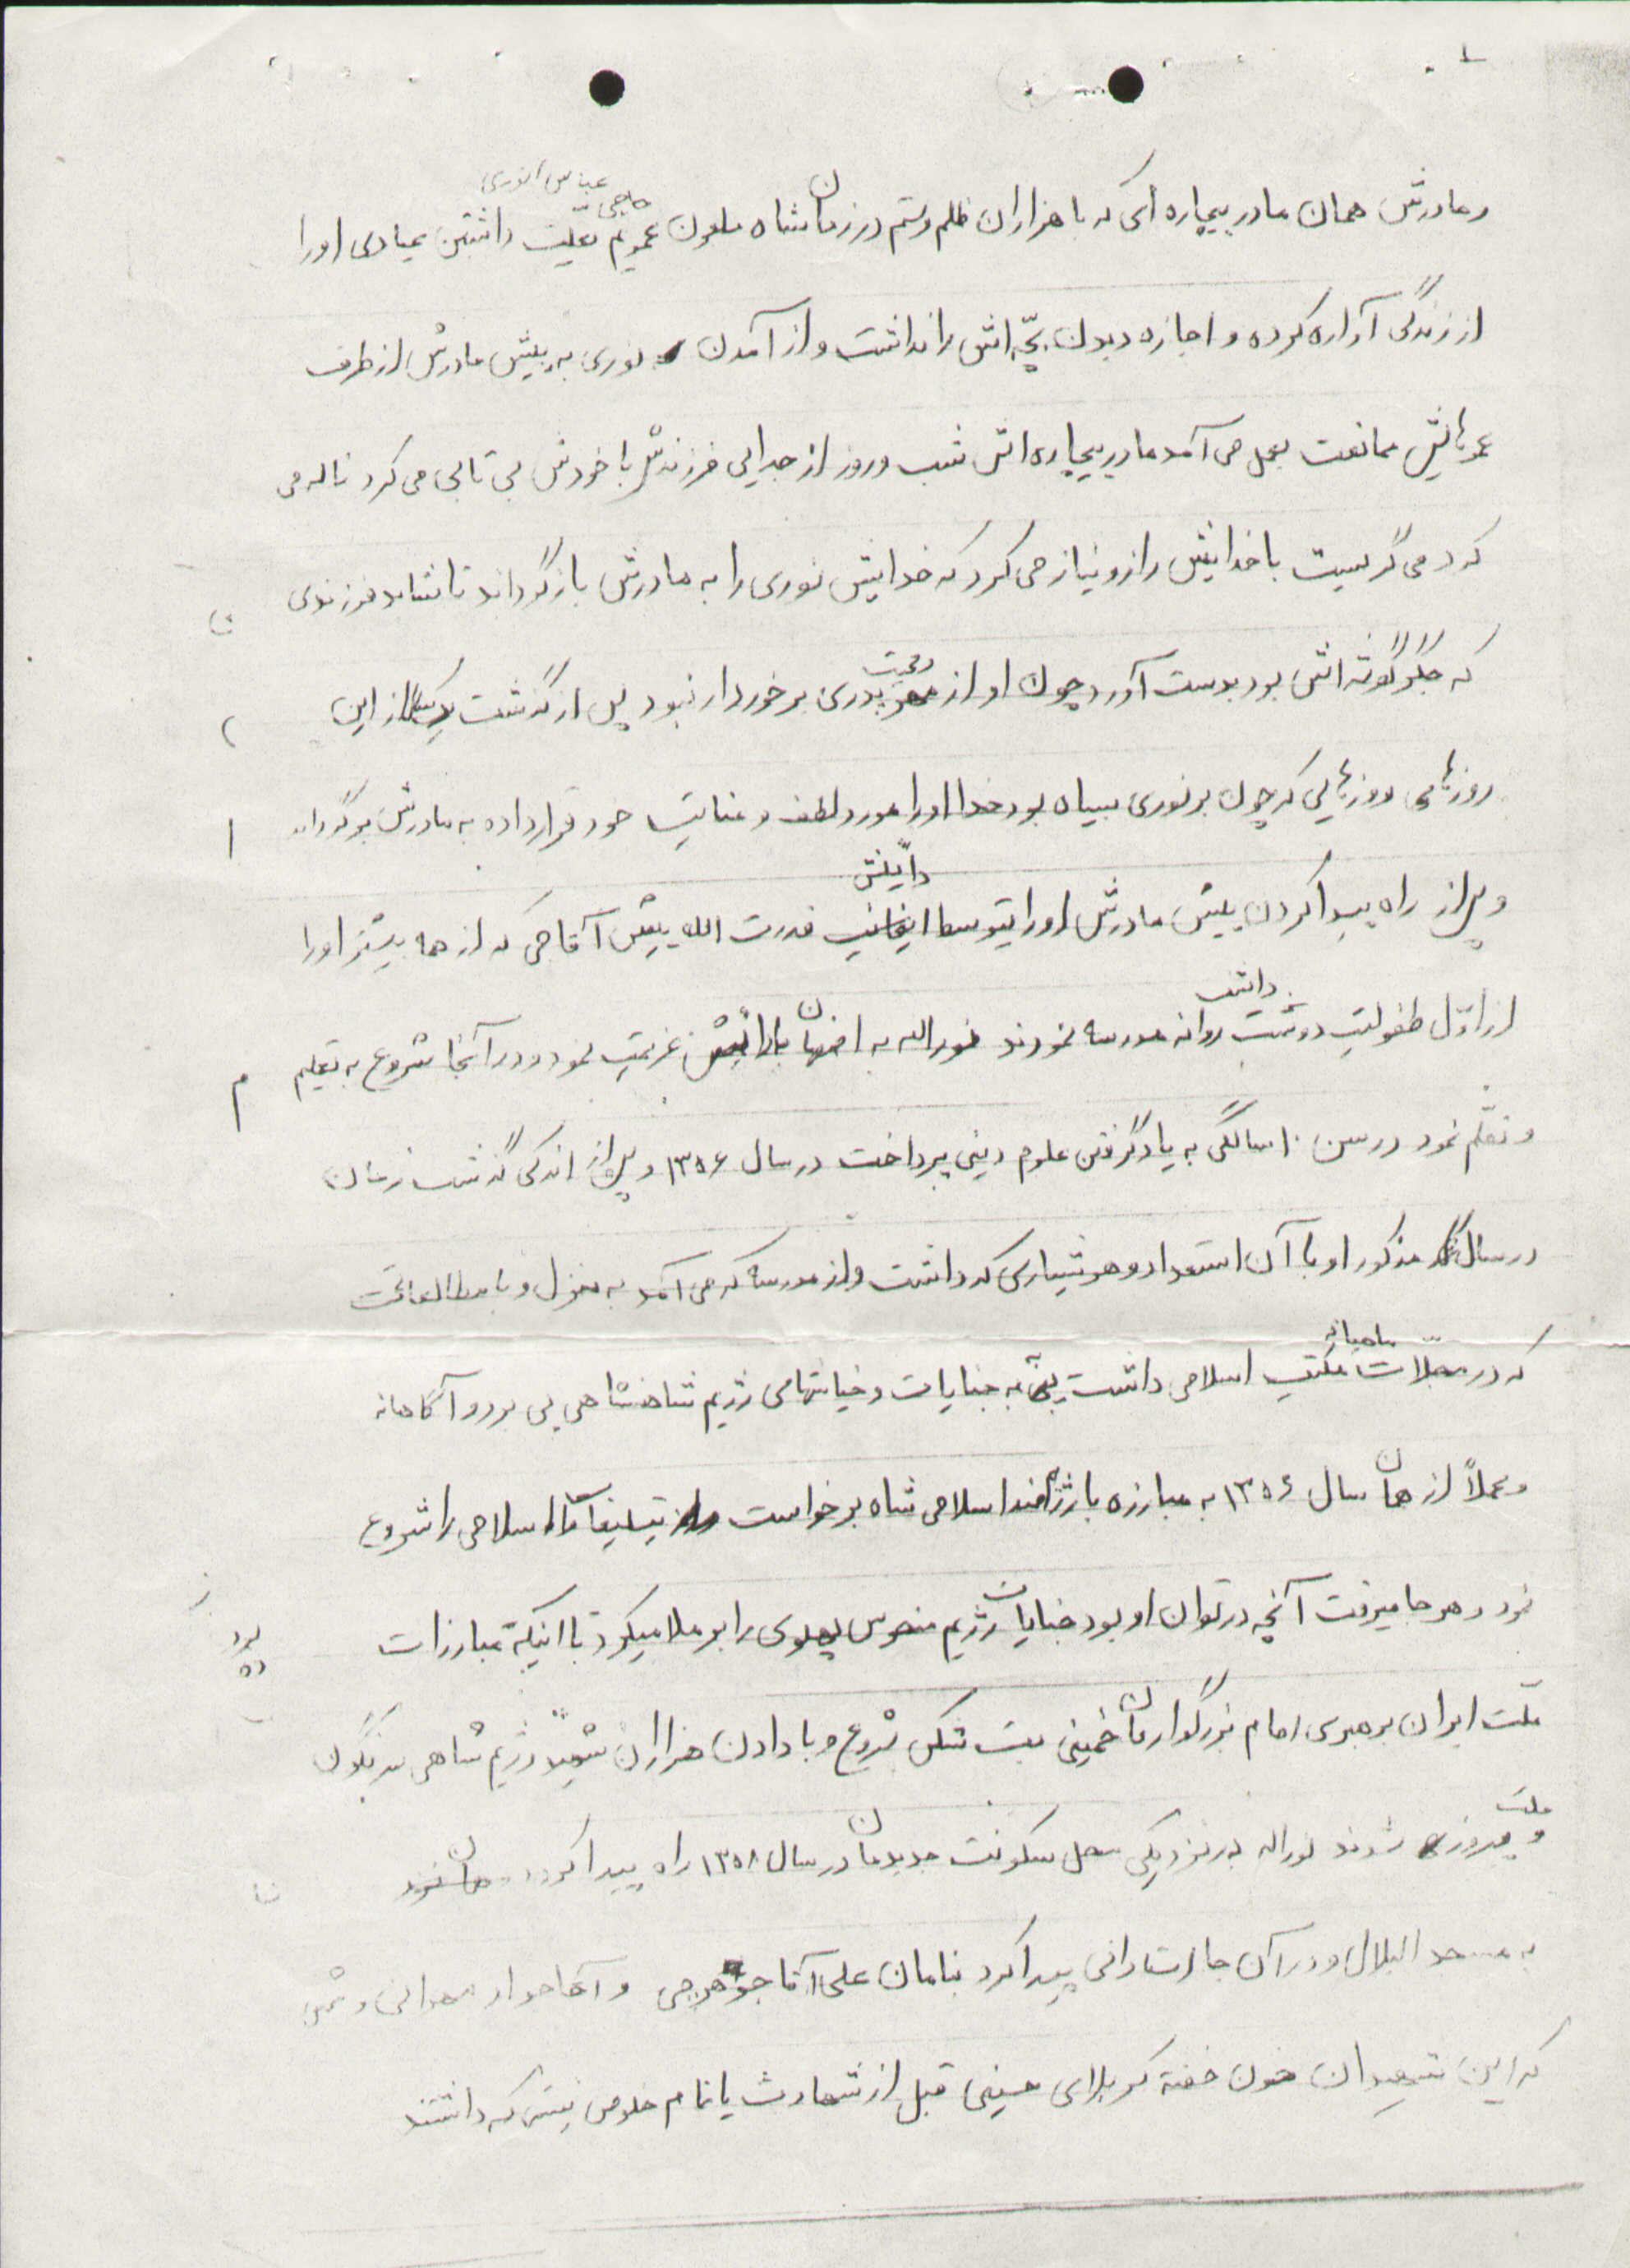 عباس انوری
حاجی
و مادرش همان مادر بیچاره ای که با هزاران ظلم و ستم در زمان شاه ملعون عمویم بعلت داشتن عیادی او را
از زندگی آواره کرده و اجازه دیدن بچّه اش را نداشت و از آمدن نوری به پیش مادرش از طرف
عموهایش ممانعت بعمل می آمد مادر بیچاره اش شب و روز از جدایی فرزندش با خودش بی تابی می کرد ناله می
کرد می گریست با خدایش راز و نیاز می کرد که خدایش نوری را به مادرش بازگرداند تا شاید فرزندی
که جگرگوشه اش بود بدست آورد چون او از مهر و محبت پدری برخوردار نبود پس از گذشت یکسال از این
روزهای روزهایی که چون بر نوری سیاه بود خدا او را مورد لطف و عنایت خود قرار داده به مادرش برگرداند
و پس از راه پیدا کردن پیش مادرش او را بتوسط دائیش قدرت الله پیش آقاجی که از همه بیشتر او را
از اوّل طفولیت دوست داشت روانه مدرسه نمودند نورالله به اصفهان با دائیش عزیمت نمود و در آنجا شروع به تعلیم
و تعلّم نمود در سن ۱۰ سالگی به یاد گرفتن علوم دینی پرداخت در سال ۱۳۵۶ و پس از اندکی گذشت زمان
در سال مذکور او با آن استعداد و هوشیاری که داشت و از مدرسه که می آمد به منزل و با مطالعات
که در مجلّات ماهیانه مکتب اسلامی داشت به جنایات و خیانتهای رژیم شاهنشاهی پی برد و آگاهانه
و عملاً از همان سال ۱۳۵۶ به مبارزه با رژیم ضد اسلامی شاه برخواست تبلیغات اسلامی را شروع
نمود و هر جا میرفت آنچه در توان او بود جنایات رژیم منحوس پهلوی را برملا میکرد تا اینکه مبارزات
ملّت ایران برهبری امام بزرگوارمان خمینی بت شکن شروع و با دادن هزاران شهید رژیم شاهی سرنگون
و ملت پیروز شدند نورالله در نزدیکی محل سکونت جدیدمان در سال ۱۳۵۸ راه پیدا کرد
به مسجد البلال و در آن جا استادانی پیدا کرد بنامان علی آقا جوهرچی و آقا جواد
که این شهیدان خون خفته کربلای حسینی قبل از شهادت با تمام خلوص نیتی که داشتند